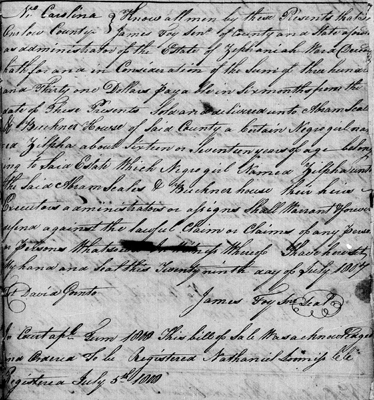 No Carolina } Know all men by these Presents that I
Onslow County } James Foy Senr of County and State afores
as administrator of the Estate of Zephaniah Ward
hath for and in Consideration of the Sum of three hundred
and Thirty one Dollars payable in Six months from the
date of These Presents Sold and delivered unto Abram Scales
& Buckner House of Said County a Certain Negro girl na
med Zilpha about Sixteen or Seventeen years of age belong
ing to Said Estate Which Negro girl Named Zilpha unto
the Said Abram Scales & Buckner house their heirs
Executors administrators or assigns Shall Warrant & forever
defend against the lawful Claim or Claims of any person
or Persons Whatsoever Whereof I have hereunto
my hand and Seal this Twenty ninth day of July
Test David Ponto
James Foy Snr Seal
This bill of Sale Was acknowledged
and Ordered To be Registered Nathaniel
Registered July